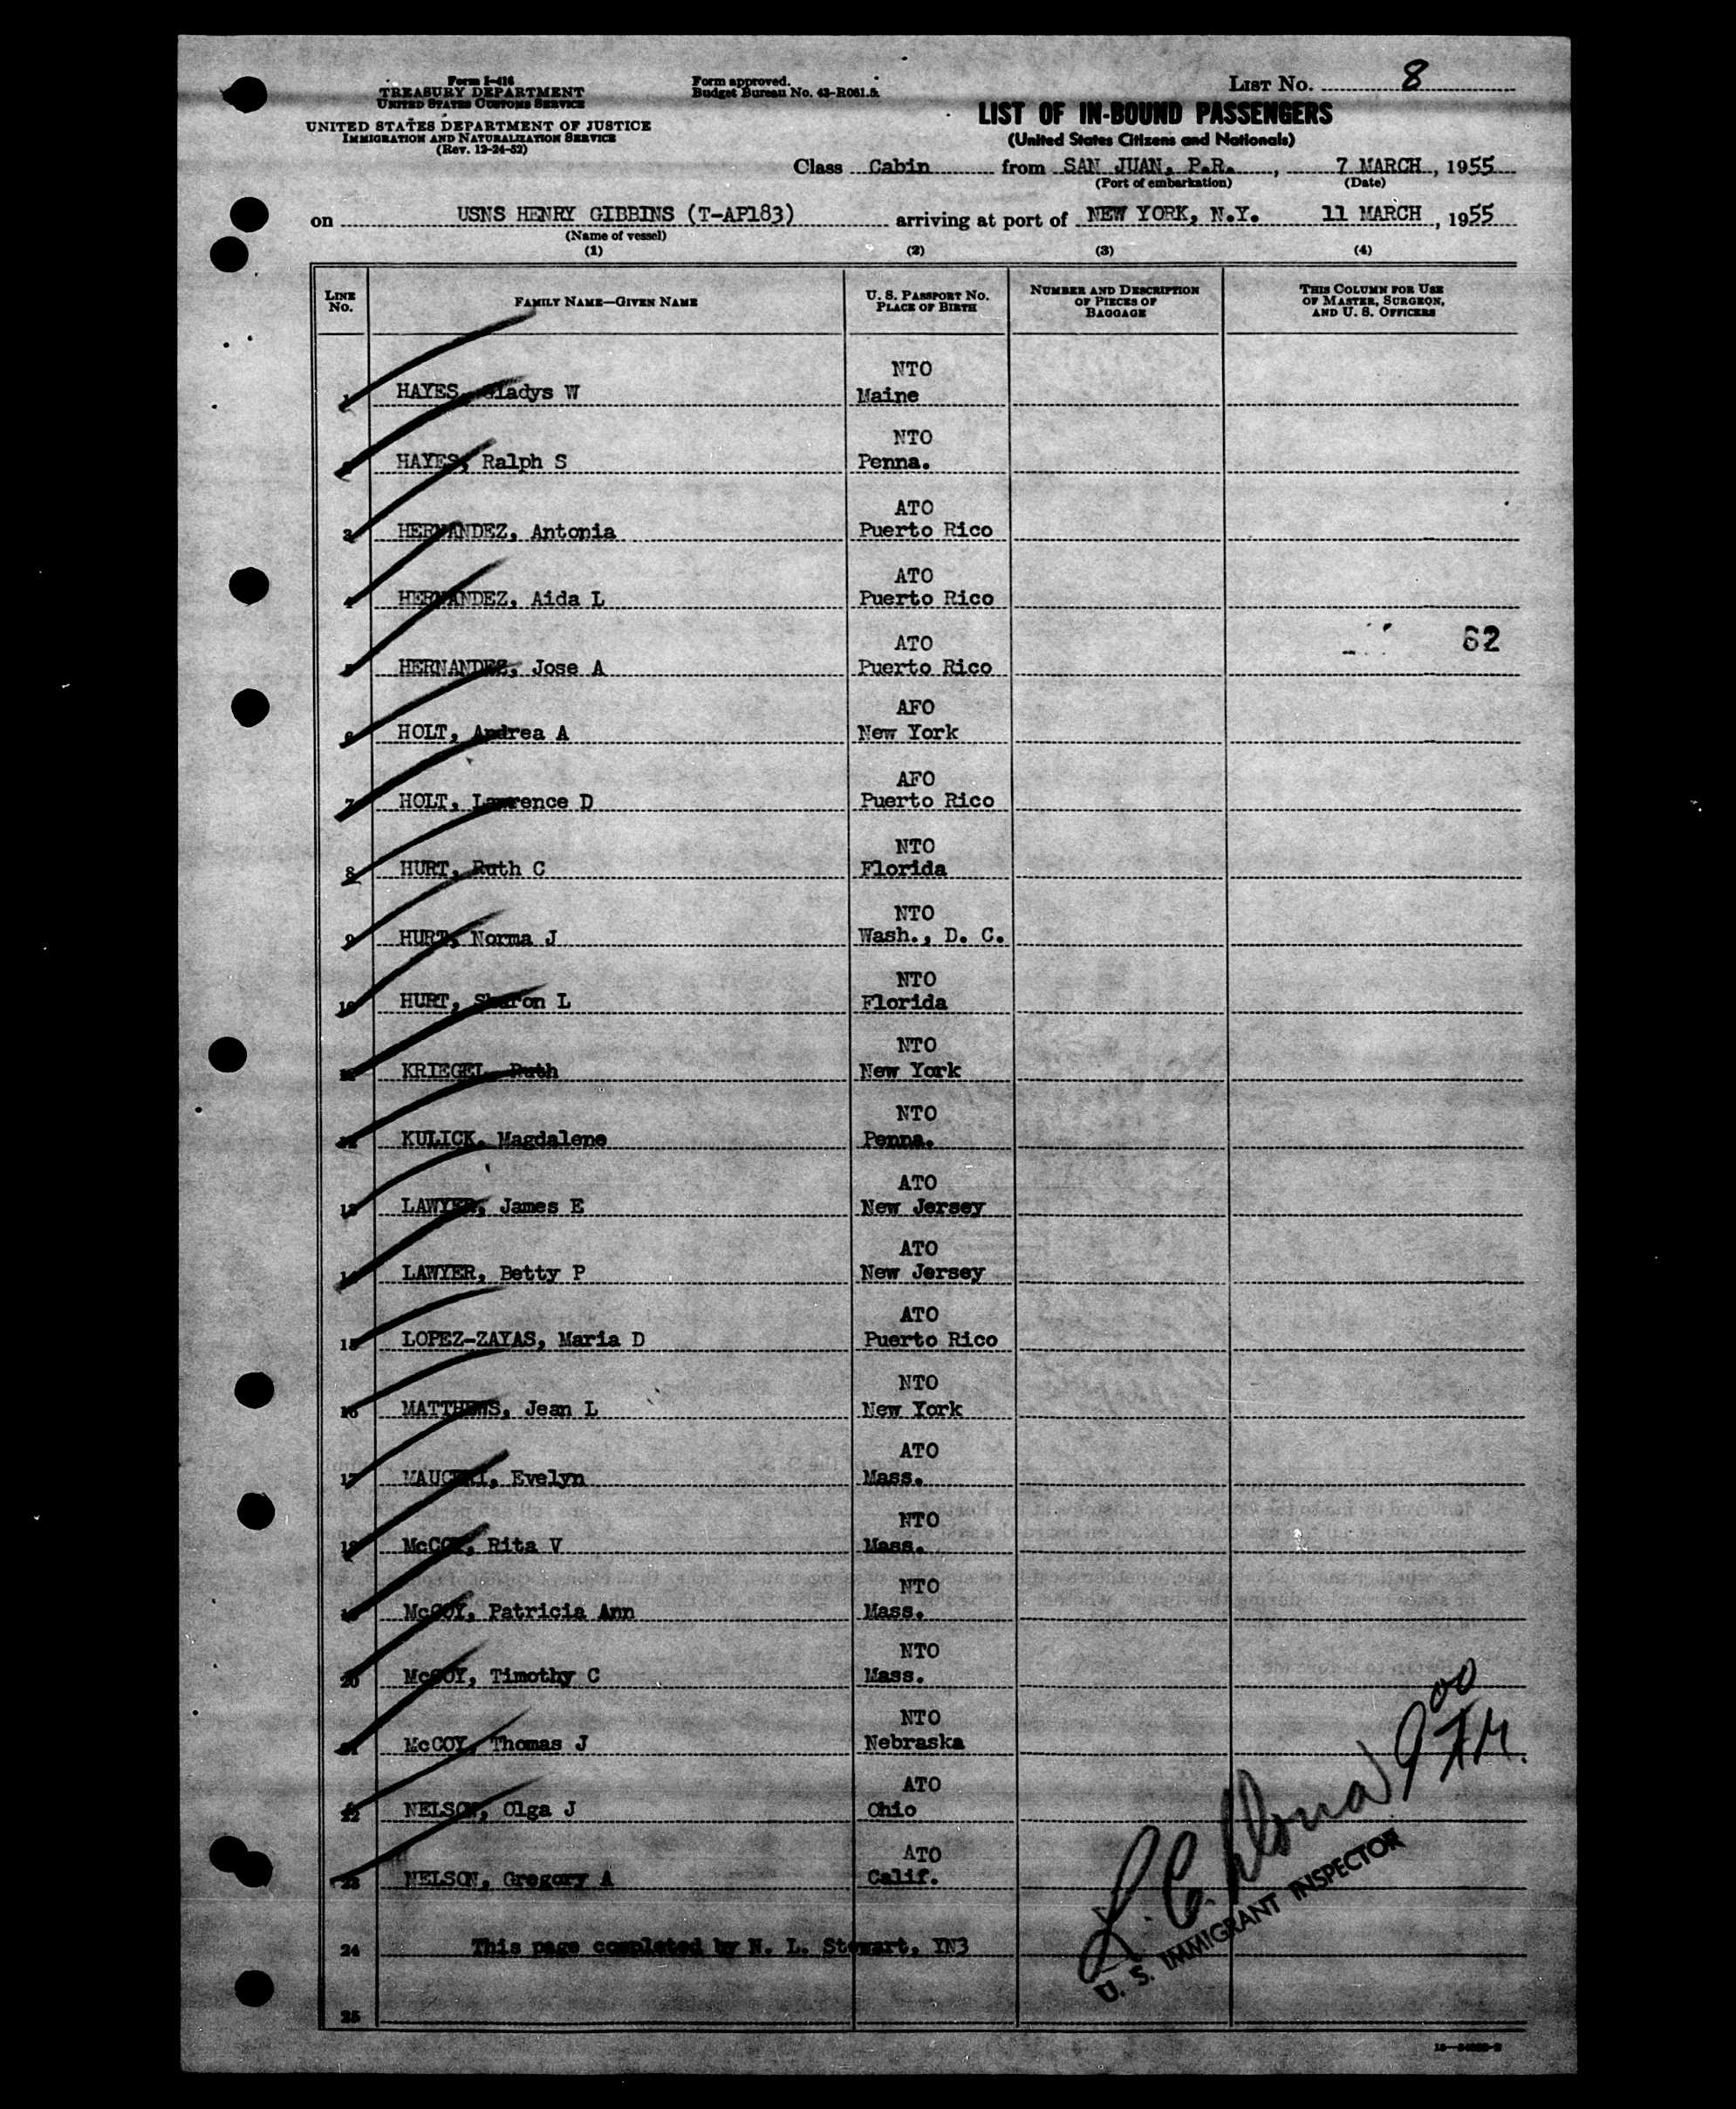 Form I-416
TREASURY DEPARTMENT
UNITED STATES CUSTOMS SERVICE
UNITED STATES DEPARTMENT OF JUSTICE
IMMIGRATION AND NATURALIZATION SERVICE
(Rev. 12-24-52)
Form approved.
Budget Bureau No. 43-R061.5.
LIST NO. 8
LIST OF IN-BOUND PASSENGERS
(United States Citizens and Nationals)
Class Cabin from SAN JUAN, P.R., 7 MARCH, 1955
(Port of embarkation) (Date)
on USNS HENRY GIBBINS (T-AP183) arriving at port of NEW YORK, N.Y. 11 MARCH, 1955
(Name of vessel)
(1) (2) (3) (4)
LINE NO.
FAMILY NAME—GIVEN NAME
U. S. PASSPORT NO.
PLACE OF BIRTH
NUMBER AND DESCRIPTION
OF PIECES OF
BAGGAGE
THIS COLUMN FOR USE
OF MASTER, SURGEON,
AND U. S. OFFICERS
NTO
1 HAYES, Gladys W Maine
NTO
2 HAYES, Ralph S Penna.
ATO
3 HERNANDEZ, Antonia Puerto Rico
ATO
4 HERNANDEZ, Aida L Puerto Rico
ATO 62
5 HERNANDEZ, Jose A Puerto Rico
AFO
6 HOLT, Andrea A New York
AFO
7 HOLT, Lawrence D Puerto Rico
NTO
8 HURT, Ruth C Florida
NTO
9 HURT, Norma J Wash., D. C.
NTO
10 HURT, Sharon L Florida
NTO
11 KRIEGEL, Ruth New York
NTO
12 KULICK, Magdalene Penna.
ATO
13 LAWYER, James E New Jersey
ATO
14 LAWYER, Betty P New Jersey
ATO
15 LOPEZ-ZAYAS, Maria D Puerto Rico
NTO
16 MATTHEWS, Jean L New York
ATO
17 MAUCERI, Evelyn Mass.
NTO
18 McCOY, Rita V Mass.
NTO
19 McCOY, Patricia Ann Mass.
NTO
20 McCOY, Timothy C Mass.
NTO
21 McCOY, Thomas J Nebraska
ATO
22 NELSON, Olga J Ohio
ATO
23 NELSON, Gregory A Calif.
24 This page completed by N. L. Stewart, YN3
25
U. S. IMMIGRANT INSPECTOR